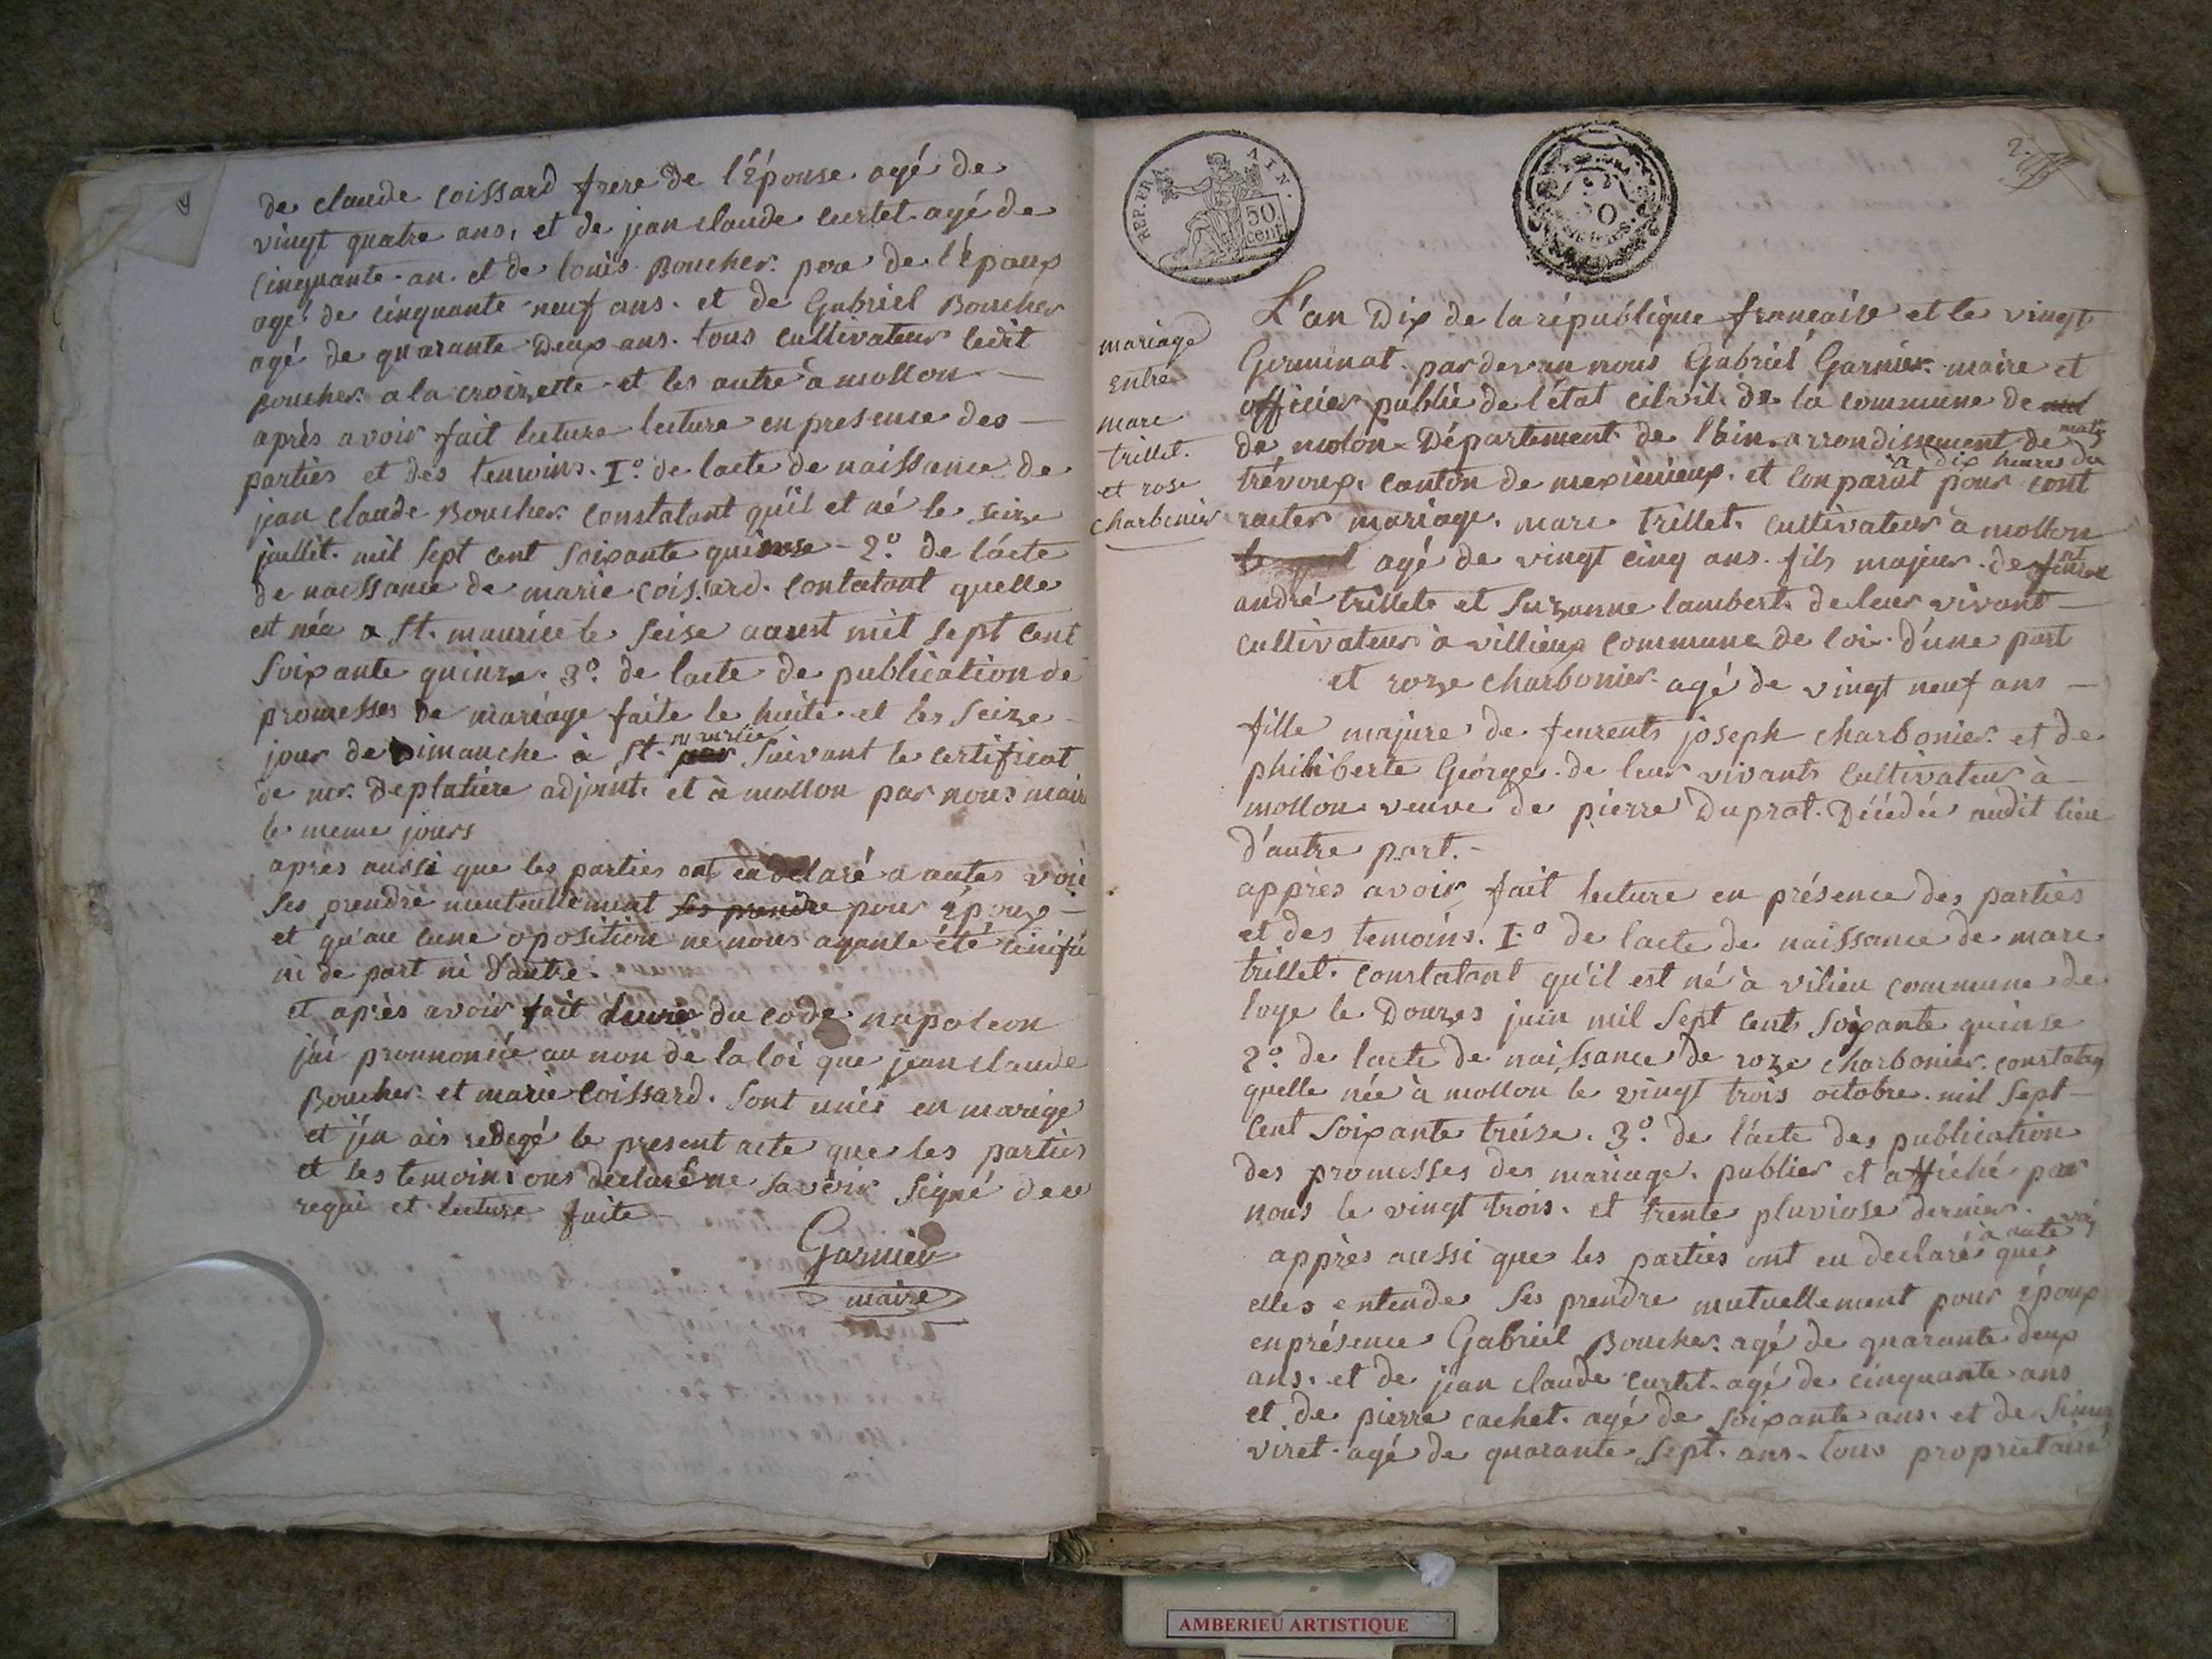 de claude coissard frere de l'Épouse agé de
vingt quatre ans, et de jean claude curtet agé de
cinquante an. et de louis Boucher. pere de l'Époux
agé de cinquante neuf ans. et de Gabriel Boucher
agé de quarante Deux ans. tous cultivateur ledit
Boucher. a la croizette et les autre à mollon
après avoir fait lecture lecture en presence des
parties et des temoins. I° de lacte de naissance de
jean claude Boucher. constatant qu'il et né le seize
juillit. mil sept cent soixante quinse - 2° de lácte
de naissance de marie coissard. contatant quelle
est née a St. maurice le seise aoust mil sept cent
soixante quinze. 3° de lacte de publication de
promesses de mariage faite le huite et les seize
jour de Dimanche à St. maurice suivant le certificat
de mr. Deplatiere adjoint. et à mollon par nous maire
le meme jours
après aussi que les parties ont eu declaré a autes voie
ses prendre mentuellement ses prendre pour époux
et qu'au cune oposition ne nous ayante été
ni de part ni d'autre.
et après avoir fait du code napoleon
j'ai prononcée au non de la loi que jean claude
Boucher. et marie Coissard. sont unis en marige
et j'en ais redegé le present acte que les parties
et les temoins ons declaré ne savoir signé de ce
requi et lecture faite
Garnier
maire
REP. FRA
AIN.
50
cent
50
2
mariage
entre
marc
trillet.
et rose
charbonier
L'an Dix de la république française et le vingt
Germinat. pardevan nous Gabriel Garnier. maire et
officier public de l'état cilvil de la commune de
de molon Département de l'ain arrondissement de
matin
à dix heures du
trévoux. canton de meximieux. et comparut pour cont
racter mariage. marc trillet. cultivateur à mollon
agé de vingt cinq ans. fils majeur. de
andré trillet et suzanne lambert. de leur vivant
cultivateur à villieux commune de loie. d'une part
et roze charbonier. agé de vingt neuf ans
fille majure de feurents joseph charbonier. et de
philiberte George. de leur vivants cultivateur à
mollon veuve de pierre Duprat. Décédée audit lieu
d'autre part.
apprès avoir fait lecture en présence des parties
et des temoins. I° de lacte de naissance de marc
trillet. constatant qu'il est né à vilieu commune de
loye le Douzes juin mil sept cents soixante quinse
2° de lacte de naissance de roze charbonier. constatan
quelle née à mollon le vingt trois octobre. mil sept
cent soixante treise. 3° de lácte des publication
des promesses des mariage. publier et affiché par
nous le vingt trois. et trente pluviose dernier.
à aute voix
apprès aussi que les parties ont eu declaré que
elles entende ses prendre mutuellement pour époux
en présence Gabriel Boucher. agé de quarante deux
ans. et de jean claude curtet. agé de cinquante ans
et de pierre cachet. agé de soixante ans. et de
viret agé de quarante sept. ans. tous proprietaire
AMBERIEU ARTISTIQUE